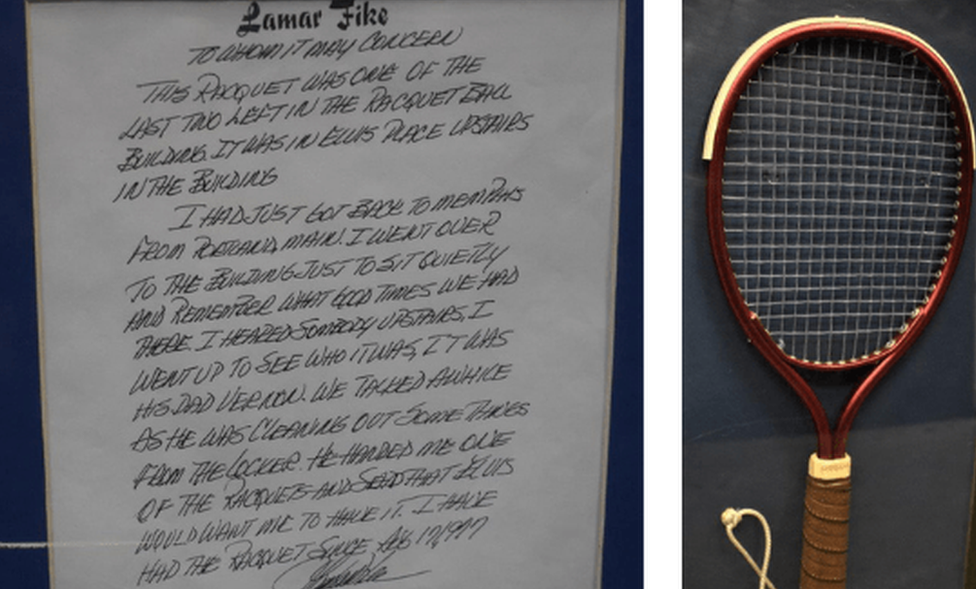 Lamar Fike
TO WHOM IT MAY CONCERN
THIS RACQUET WAS ONE OF THE
LAST TWO LEFT IN THE RACQUET BALL
BUILDING. IT WAS IN ELVIS PLACE UPSTAIRS
IN THE BUILDING
I HAD JUST GOT BACK TO MEMPHIS
FROM PORTLAND, MAIN. I WENT OVER
TO THE BUILDING JUST TO SIT QUIETLY
AND REMEMBER WHAT GOOD TIMES WE HAD
THERE. I HEARED SOMBODY UPSTAIRS. I
WENT UP TO SEE WHO IT WAS, IT WAS
HIS DAD VERNON. WE TALKED AWHILE
AS HE WAS CLEANING OUT SOME THINGS
FROM THE LOCKER. HE HANDED ME ONE
OF THE RACQUETS AND SAID THAT ELVIS
WOULD WANT ME TO HAVE IT. I HAVE
HAD THE RACQUET SINCE AUG 17, 1977